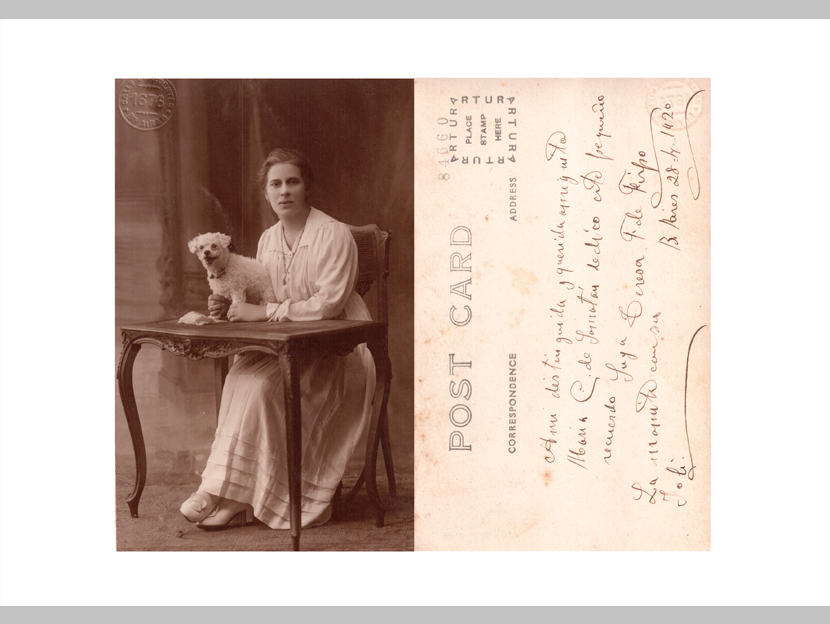 1878
84660
ARTURA
ARTURA
ARTURA
ARTURA
PLACE
STAMP
HERE
POST CARD
CORRESPONDENCE
ADDRESS
A mi distinguida y querida amiguita
Maria C. de dedico este pequeño
recuerdo Suya Teresa F. de Firpo
La con su
Joli.
B Aires 28-4-1920